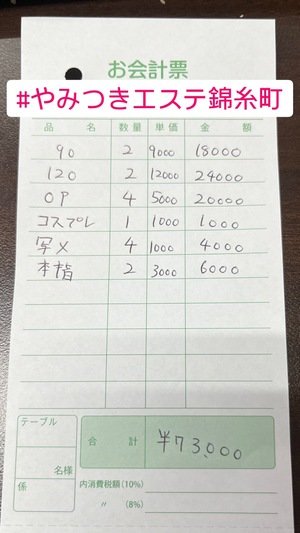 お会計票
#やみつきエステ錦糸町
品 名 数量 単価 金 額
90 2 9000 18000
120 2 12000 24000
OP 4 5000 20000
コスプレ 1 1000 1000
写メ 4 1000 4000
本指 2 3000 6000
テーブル
名様
係
合 計 ¥73,000
内消費税額(10%)
〃 (8%)